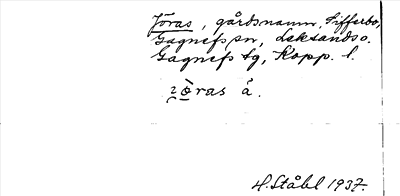 Jöras, gårdsnamn, Sifferbo,
Gagnefs sn, Leksands o.
Gagnefs tg, Kopp. l.
2 ö̀ras å.
H. Ståhl 1937.